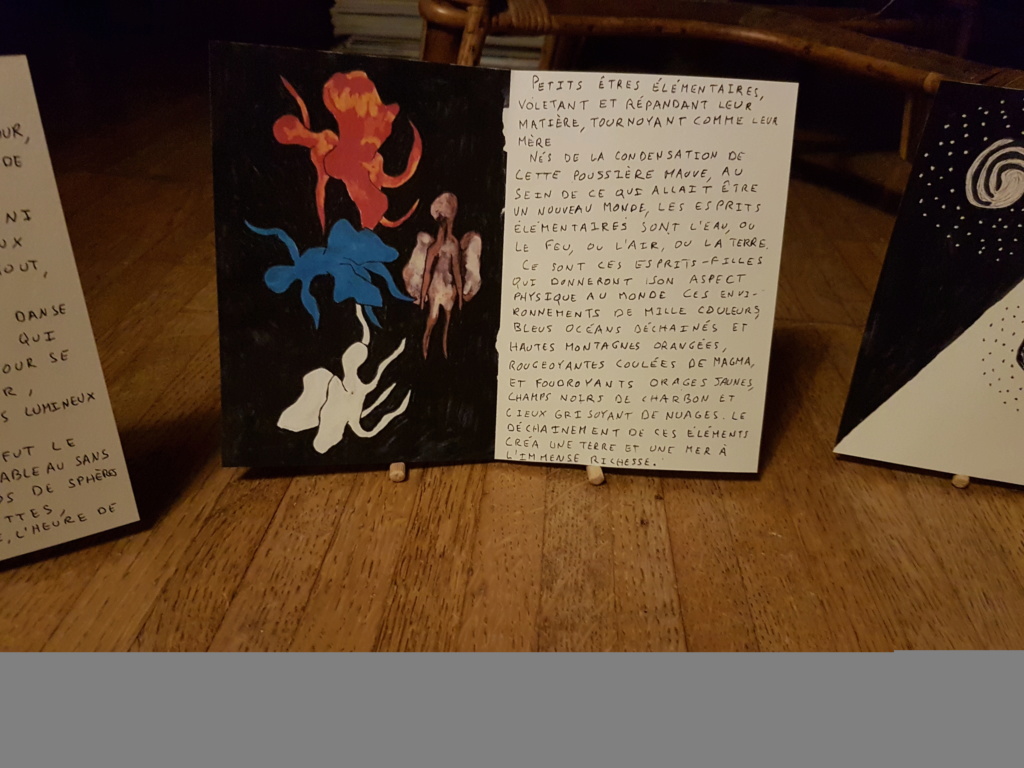 OUR,
DE
NI
UX
OUT,
DANSE
QUI
OUR SE
R,
S LUMINEUX
FUT LE
ABLEAU SANS
DS DE SPHÈRES
TTES,
E, L'HEURE DE
PETITS ÊTRES ÉLÉMENTAIRES,
VOLETANT ET RÉPANDANT LEUR
MATIÈRE, TOURNOYANT COMME LEUR
MÈRE
NÉS DE LA CONDENSATION DE
CETTE POUSSIÈRE MAUVE, AU
SEIN DE CE QUI ALLAIT ÊTRE
UN NOUVEAU MONDE, LES ESPRITS
ÉLÉMENTAIRES SONT L'EAU, OU
LE FEU, OU L'AIR, OU LA TERRE.
CE SONT CES ESPRITS-FILLES
QUI DONNERONT SON ASPECT
PHYSIQUE AU MONDE CES ENVI-
RONNEMENTS DE MILLE COULEURS,
BLEUS OCÉANS DÉCHAINÉS ET
HAUTES MONTAGNES ORANGÉES,
ROUGEOYANTES COULÉES DE MAGMA,
ET FOUDROYANTS ORAGES JAUNES,
CHAMPS NOIRS DE CHARBON ET
CIEUX GRISOYANT DE NUAGES. LE
DÉCHAINEMENT DE CES ÉLÉMENTS
CRÉA UNE TERRE ET UNE MER À
L'IMMENSE RICHESSE.